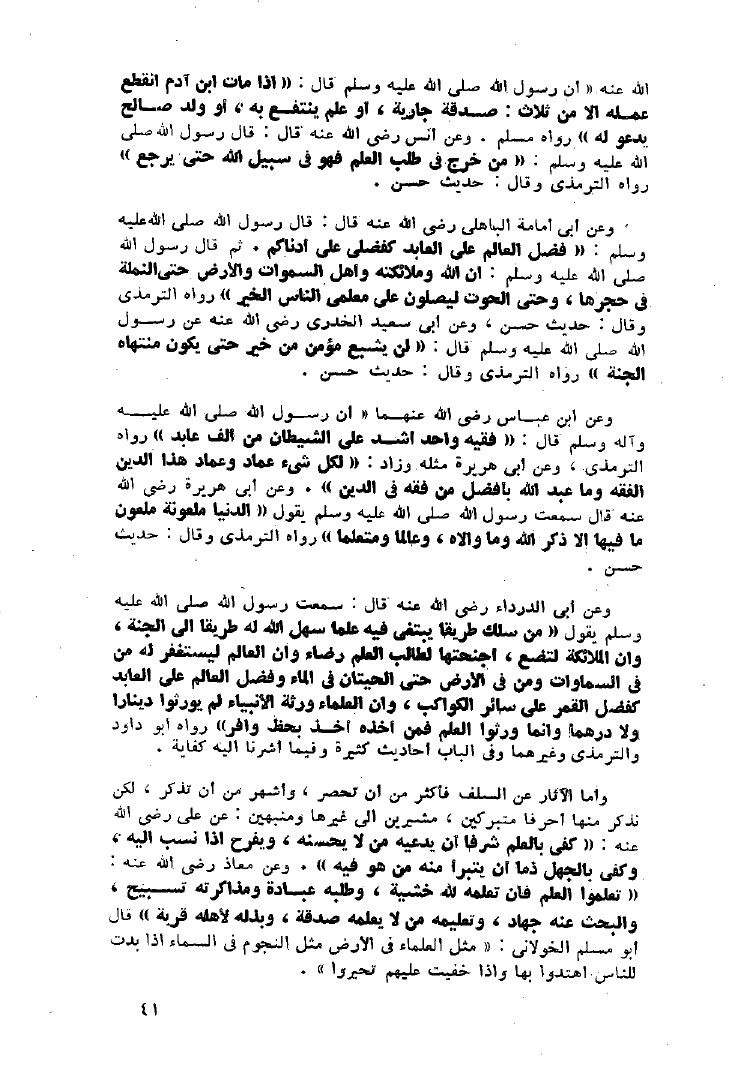 الله عنه « أن رسول الله صلى الله عليه وسلم قال : « اذا مات ابن آدم انقطع
عمـله الا من ثلاث : صـدقة جارية ، أو علم ينتفـع به ، أو ولد صـالح
يدعو له » رواه مسلم . وعن أنس رضى الله عنه قال : قال رسول الله صلى
الله عليه وسلم : « من خرج فى طلب العلم فهو فى سبيل الله حتى يرجع »
رواه الترمذى وقال : حديث حسن .
وعن أبى أمامة الباهلى رضى الله عنه قال : قال رسول الله صلى الله عليه
وسلم : « فضل العالم على العابد كفضلى على أدناكم . ثم قال رسول الله
صلى الله عليه وسلم : ان الله وملائكته وأهل السموات والأرض حتى النملة
فى حجرها ، وحتى الحوت ليصلون على معلمى الناس الخير » رواه الترمذى
وقال : حديث حسن ، وعن أبى سعيد الخدرى رضى الله عنه عن رسـول
الله صلى الله عليه وسلم قال : « لن يشبع مؤمن من خير حتى يكون منتهاه
الجنة » رواه الترمذى وقال : حديث حسن .
وعن ابن عبـاس رضى الله عنهـما « أن رسـول الله صلى الله عليـه
وآله وسلم قال : « فقيه واحد أشـد على الشيطان من ألف عابد » رواه
الترمذى ، وعن أبى هريرة مثله وزاد : « لكل شىء عماد وعماد هذا الدين
الفقه وما عبد الله بأفضل من فقه فى الدين » . وعن أبى هريرة رضى الله
عنه قال سمعت رسول الله صلى الله عليه وسلم يقول « الدنيا ملعونة ملعون
ما فيها الا ذكر الله وما والاه ، وعالما ومتعلما » رواه الترمذى وقال : حديث
حسن .
وعن أبى الدرداء رضى الله عنه قال : سمعت رسول الله صلى الله عليه
وسلم يقول « من سلك طريقا يبتغى فيه علما سهل الله له طريقا الى الجنة ،
وان الملائكة لتضع ، أجنحتها لطالب العلم رضاء وان العالم ليستغفر له من
فى السماوات ومن فى الأرض حتى الحيتان فى الماء وفضل العالم على العابد
كفضل القمر على سائر الكواكب ، وان العلماء ورثة الأنبياء لم يورثوا دينارا
ولا درهما وانما ورثوا العلم فمن أخذه أخـذ بحظ وافر» رواه أبو داود
والترمذى وغيرهما وفى الباب أحاديث كثيرة وفيما أشرنا اليه كفاية .
وأما الآثار عن السلف فأكثر من أن تحصر ، وأشهر من أن تذكر ، لكن
نذكر منها أحرفا متبركين ، مشيرين الى غيرها ومنبهين : عن على رضى الله
عنه : « كفى بالعلم شرفا أن يدعيه من لا يحسنه ، ويفرح اذا نسب اليه ،
وكفى بالجهل ذما أن يتبرأ منه من هو فيه » . وعن معاذ رضى الله عنه :
« تعلموا العلم فان تعلمه لله خشية ، وطلبه عبـادة ومذاكرته تسـبيح ،
والبحث عنه جهاد ، وتعليمه من لا يعلمه صدقة ، وبذله لأهله قربة » قال
أبو مسلم الخولانى : « مثل العلماء فى الأرض مثل النجوم فى السماء اذا بدت
للناس اهتدوا بها واذا خفيت عليهم تحيروا » .
٤١